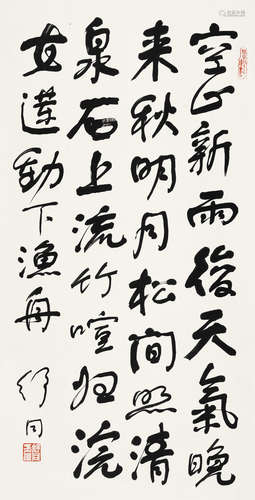 空山新雨後天氣晚
来秋明月松间照清
泉石上流竹喧归浣
女蓮動下漁舟
舒同